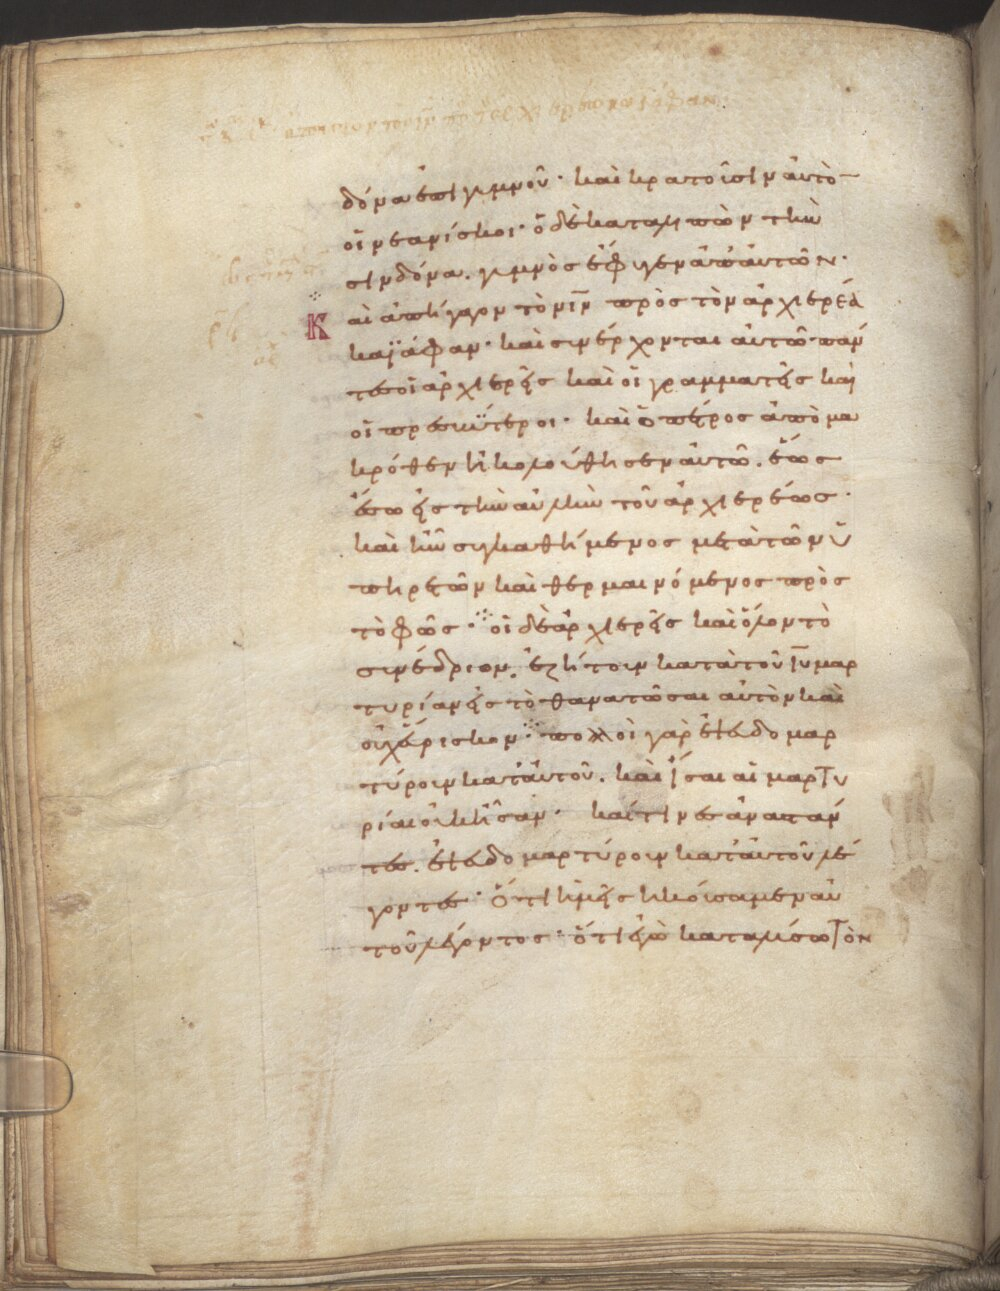 δόνα ἐπὶ γυμνοῦ· καὶ κρατοῦσιν αὐτὸ
οἱ νεανίσκοι· ὁ δὲ καταλιπὼν τὴν
σινδόνα. γυμνὸς ἔφυγεν ἀπ αὐτῶν·
Κ αὶ ἀπήγαγον τὸν ιν πρὸς τὸν ἀρχιερέα
καϊάφαν· καὶ συνέρχονται αὐτῶ πάν
τες οἱ ἀρχιερεῖς καὶ οἱ γραμματεῖς καὶ
οἱ πρεσβύτεροι· καὶ ὁ πέτρος ἀπὸ μα
κρόθεν ἠκολούθησεν αὐτῶ. ἕως
ἔσω εἰς τὴν αὐλὴν τοῦ ἀρχιερέως·
καὶ ἦν συγκαθήμενος μετὰ τῶν ὑ
πηρετῶν καὶ θερμαινόμενος πρὸς
τὸ φῶς· οἱ δὲ ἀρχιερεῖς καὶ ὅλον τὸ
συνέδριον. ἐζήτουν κατὰ τοῦ ιυ μαρ
τυρίαν εἰς τὸ θανατῶσαι αὐτὸν καὶ
οὐχ εὕρισκον· πολλοὶ γὰρ ἐψευδομαρ
τύρουν κατ αὐτοῦ. καὶ ἴσαι αἱ μαρτυ
ρίαι οὐκ ἦσαν· καί τινες ἀναστάν
τες. ἐψευδομαρτύρουν κατ αὐτοῦ λέ
γοντες· ὅτι ἡμεῖς ἠκούσαμεν αὐ
τοῦ λέγοντος· ὅτι ἐγὼ καταλύσω τὸν